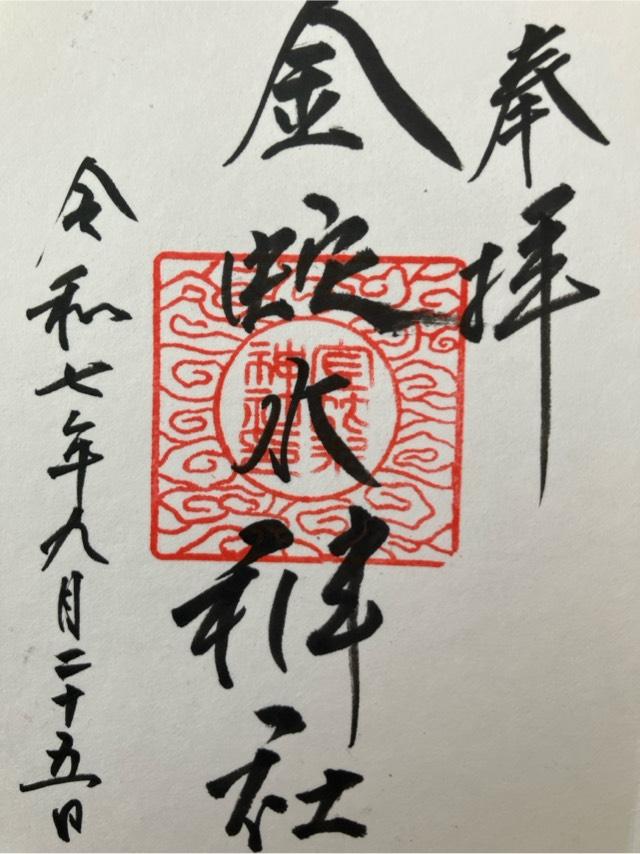 奉拝
金蛇水神社
令和七年九月二十五日